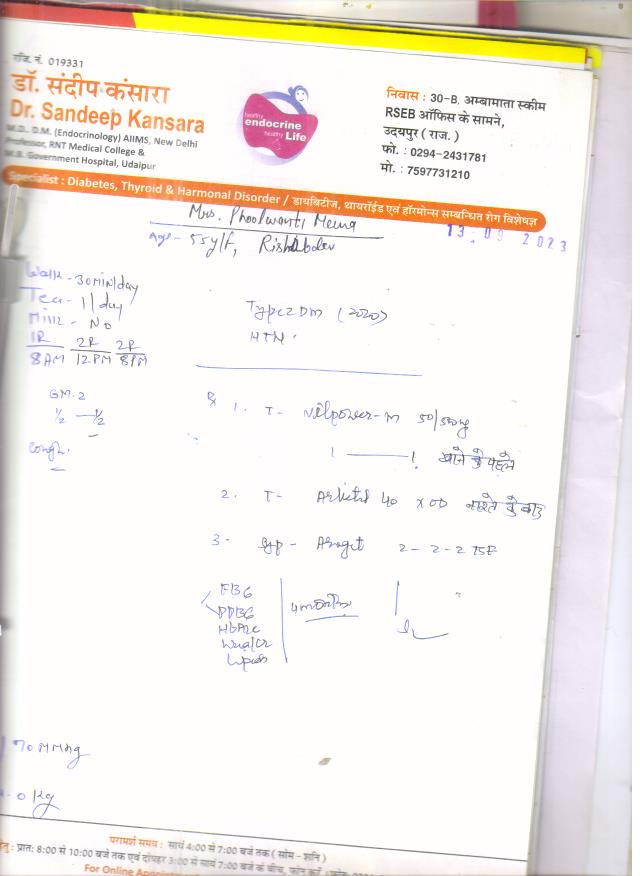 रजि. नं. 019331
डॉ. संदीप कंसारा
Dr. Sandeep Kansara
M.D., D.M. (Endocrinology) AIIMS, New Delhi
Professor, RNT Medical College &
M.B. Government Hospital, Udaipur
healthy
endocrine
healthy Life
निवास : 30-B, अम्बामाता स्कीम
RSEB ऑफिस के सामने,
उदयपुर ( राज. )
फो. : 0294-2431781
मो. : 7597731210
Specialist : Diabetes, Thyroid & Harmonal Disorder / डायबिटीज, थायरॉईड एवं हॉरमोन्स सम्बन्धित रोग विशेषज्ञ
Mrs. Phoolwanti Meena
13.09 2023
Age - 55y/F, Rishabdev
Walk - 30min/day
Tea - 1/day
Milk - NO
1R 2R 2R
8AM 12PM 8PM
Type2DM (2020)
HTN
GM-2
½ — ½
Cough.
Rx 1. T- Vilpower-M 50/500mg
1 —— 1 खाने के पहले
2. T- 40 x OD नाश्ते के बाद
3. Syp - 2-2-2 TSF
FBG
PPBG
HbA1c
Urea/Cr
Lipids
4months
70 MMHg
.0 Kg
परामर्श समय : सायं 4:00 से 7:00 बजे तक ( सोम - शनि )
हेतु : प्रात: 8:00 से 10:00 बजे तक एवं दोपहर 3:00 से सायं 7:00 बजे के बीच, फोन करें
For Online